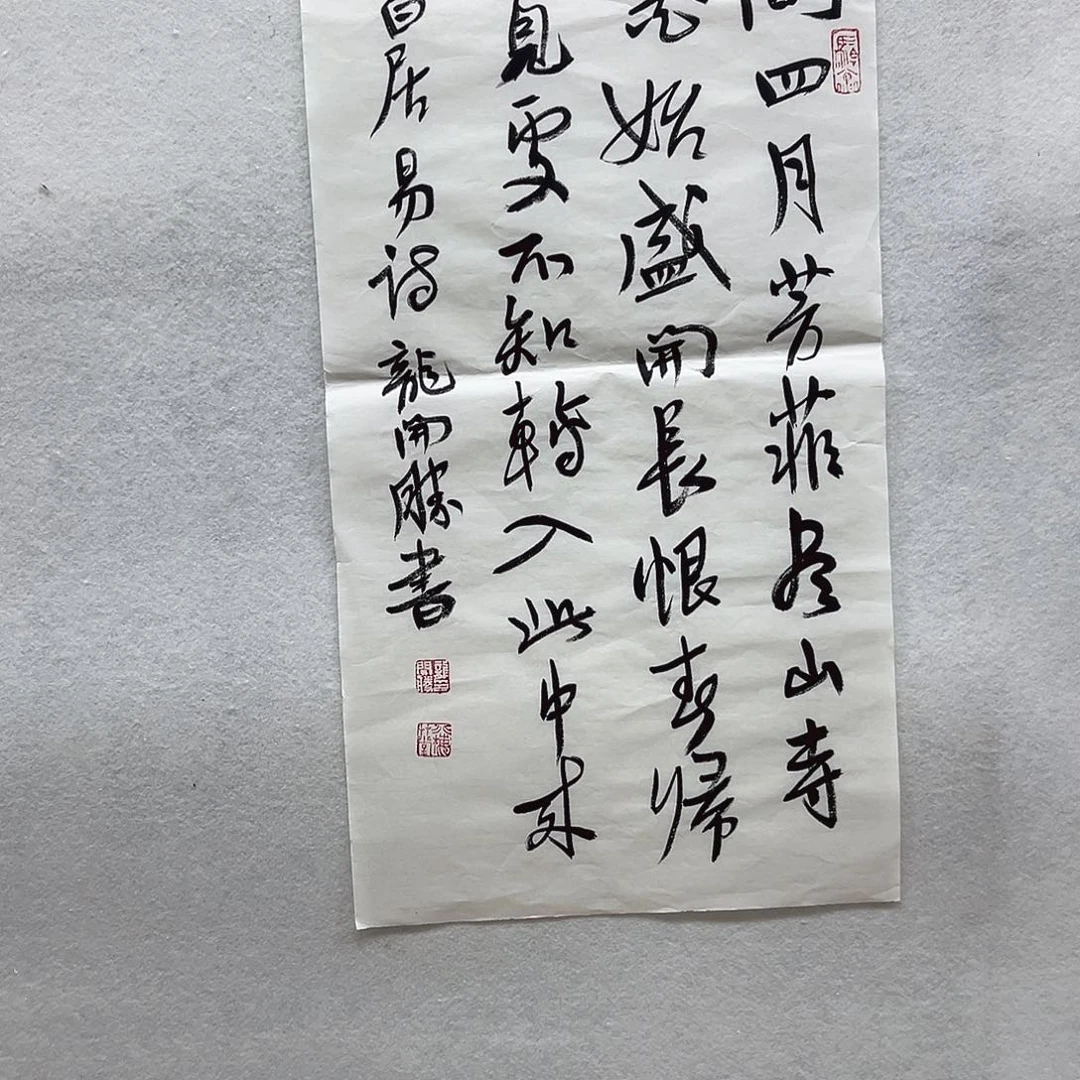 間四月芳菲尽山寺
花始盛開長恨春歸
覓處不知轉入此中来
白居易詩 龍開勝書